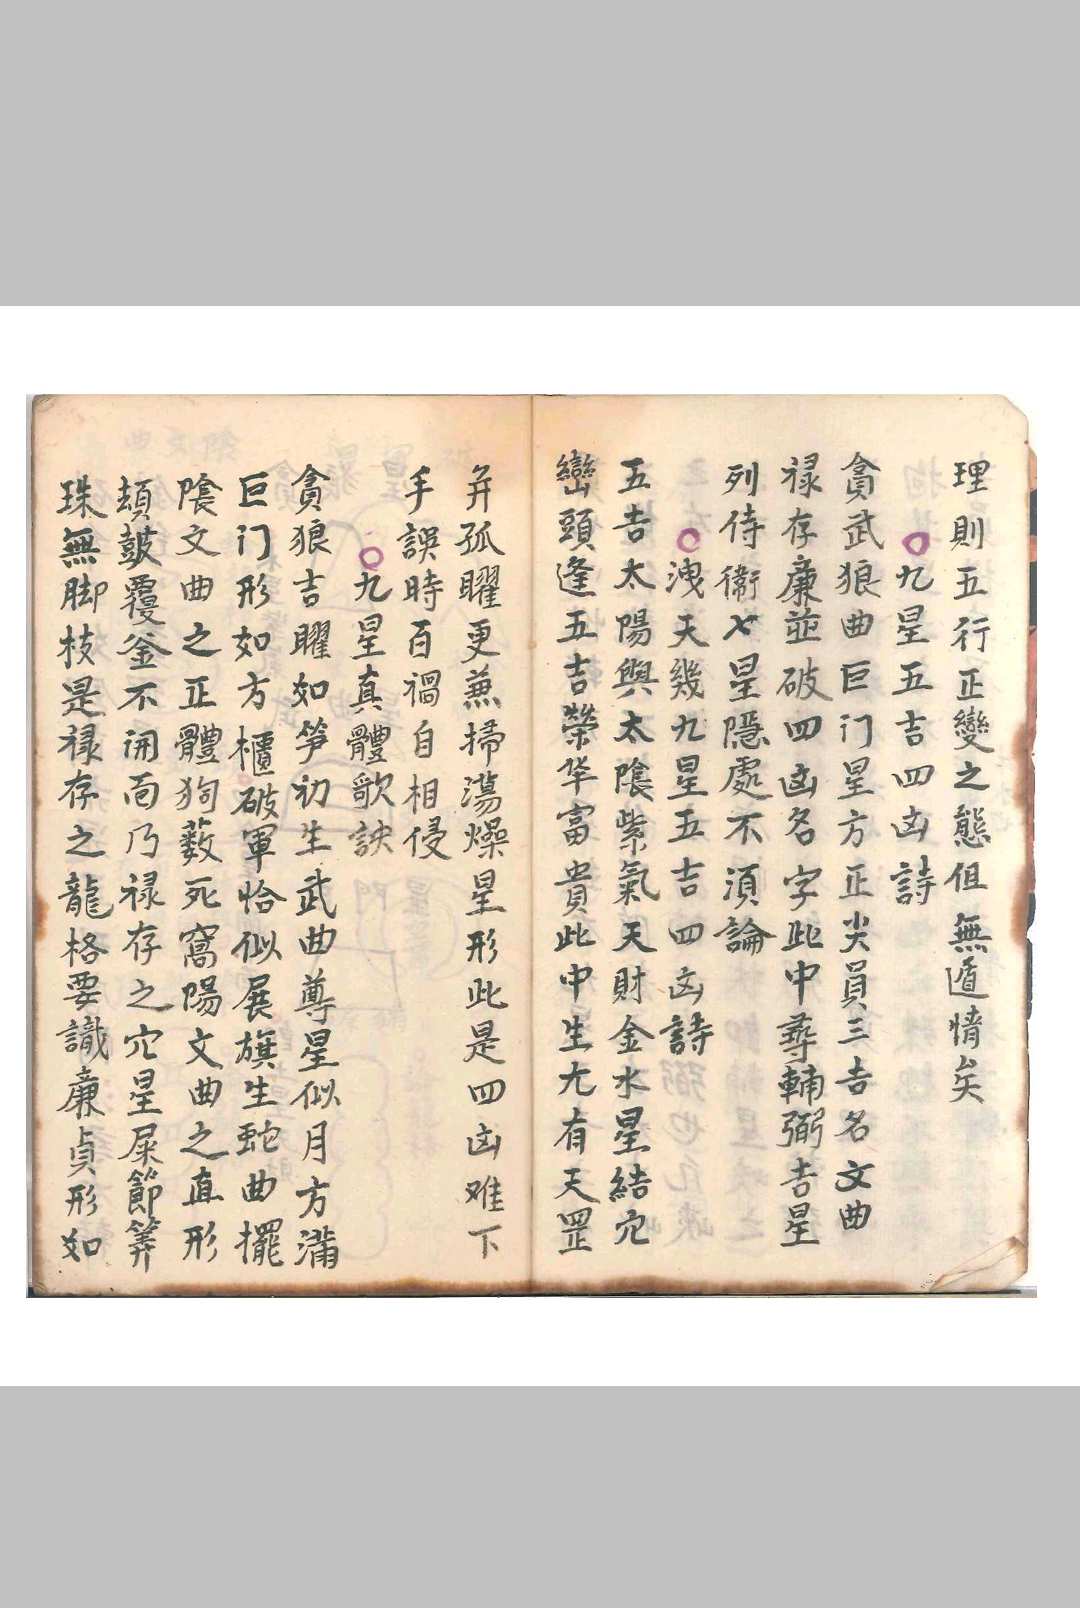 理則五行正變之態但無遁情矣
九星五吉四凶詩
貪武狼曲巨门星方正尖員三吉名文曲
禄存廉並破四凶名字此中尋輔弼吉星
列侍衛七星隱處不須論
洩天幾九星五吉四凶詩
五吉太陽與太陰紫氣天財金水星結穴
巒頭逢五吉榮华富貴此中生尢有天罡
并孤曜更兼掃蕩燥星形此是四凶难下
手誤時百禍自相侵
九星真體歌訣
貪狼吉曜如笋初生武曲尊星似月方滿
巨门形如方櫃破軍恰似展旗生蛇曲擺
陰文曲之正體狗薮死窩陽文曲之直形
頓鼓覆釜不闹而乃禄存之穴星屎節筭
珠無脚枝是禄存之龍格要識廉貞形如